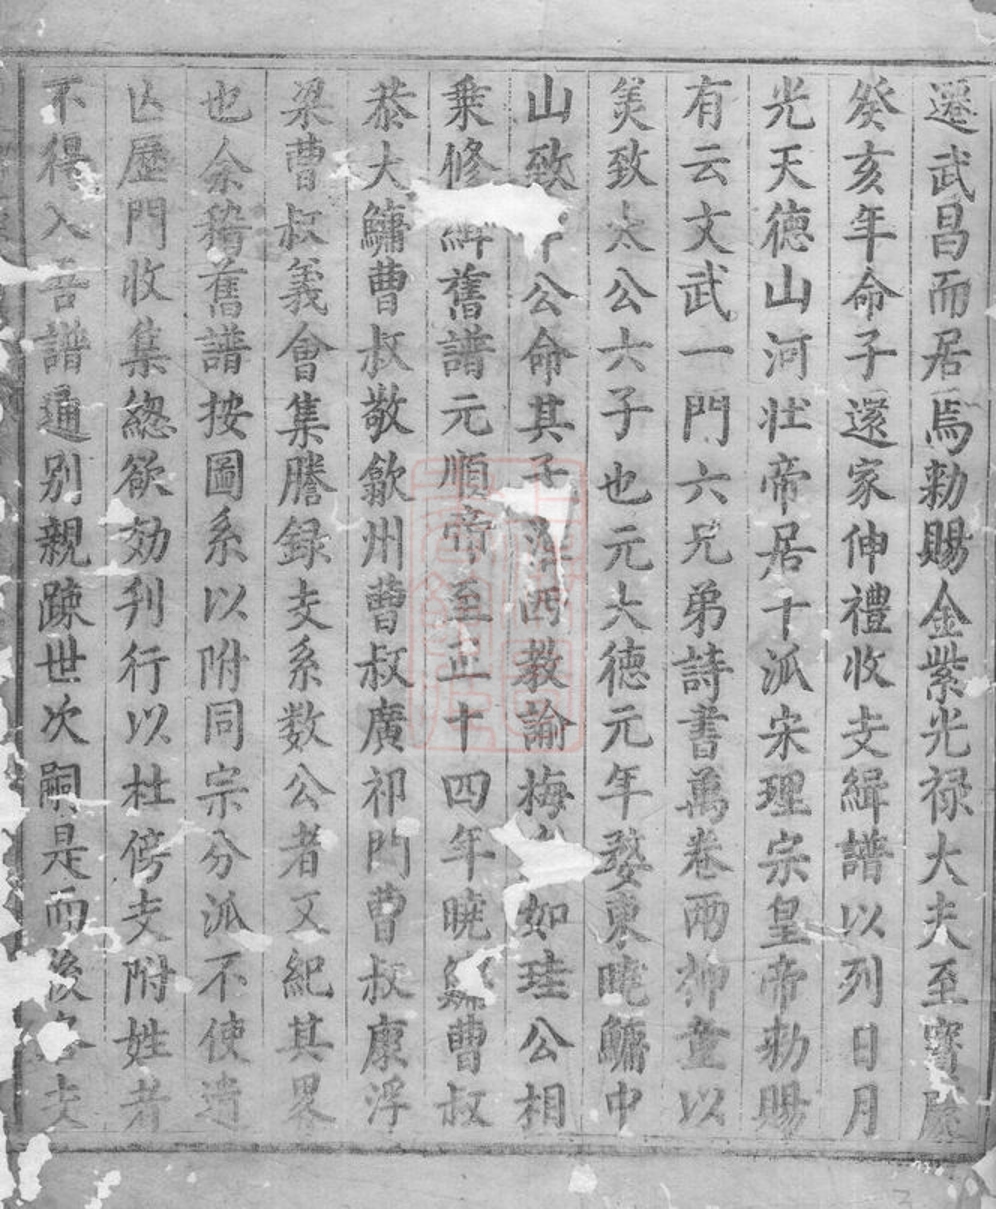 遷武昌而居焉勑賜金紫光禄大夫至寳慶
癸亥年命子還家伸禮收支緝譜以列日月
光天德山河壮帝居十派宋理宗皇帝勑賜
有云文武一門六兄弟詩書萬卷兩神童以
美致太公六子也元大德元年婺東曉鱅中
山致公命其子西教諭梅如珪公相
乗修緝舊譜元順帝至正十四年曉曹叔
恭大鱅曹叔敬歙州曹叔廣祁門曹叔康浮
梁曹叔義會集謄録支系数公者又紀其畧
也余稽舊譜按圖系以附同宗分派不使遺
亾歴門收集緫欲効刋行以杜傍支附姓者
不得入吾譜通别親踈世次嗣是而後支